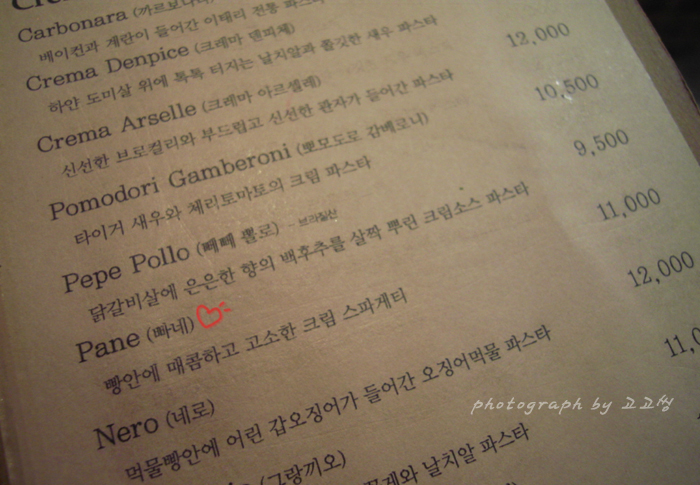 Carbonara (까르보나라)
베이컨과 계란이 들어간 이태리 전통 파스타
Crema Denpice (크레마 덴피체)
하얀 도미살 위에 톡톡 터지는 날치알과 통깃한 새우 파스타
12,000
Crema Arselle (크레마 아르셀레)
신선한 브로컬리와 부드럽고 신선한 관자가 들어간 파스타
10,500
Pomodori Gamberoni (뽀모도로 감베로니)
타이거 새우와 체리토마토의 크림 파스타
9,500
Pepe Pollo (빼빼 뽈로) - 브라질산
닭갈비살에 은은한 향의 백후추를 살짝 뿌린 크림소스 파스타
11,000
Pane (빠네)
빵안에 매콤하고 고소한 크림 스파게티
12,000
Nero (네로)
먹물빵안에 어린 갑오징어가 들어간 오징어먹물 파스타
(그랑끼오)
날치알 파스타
photograph by 고고씽